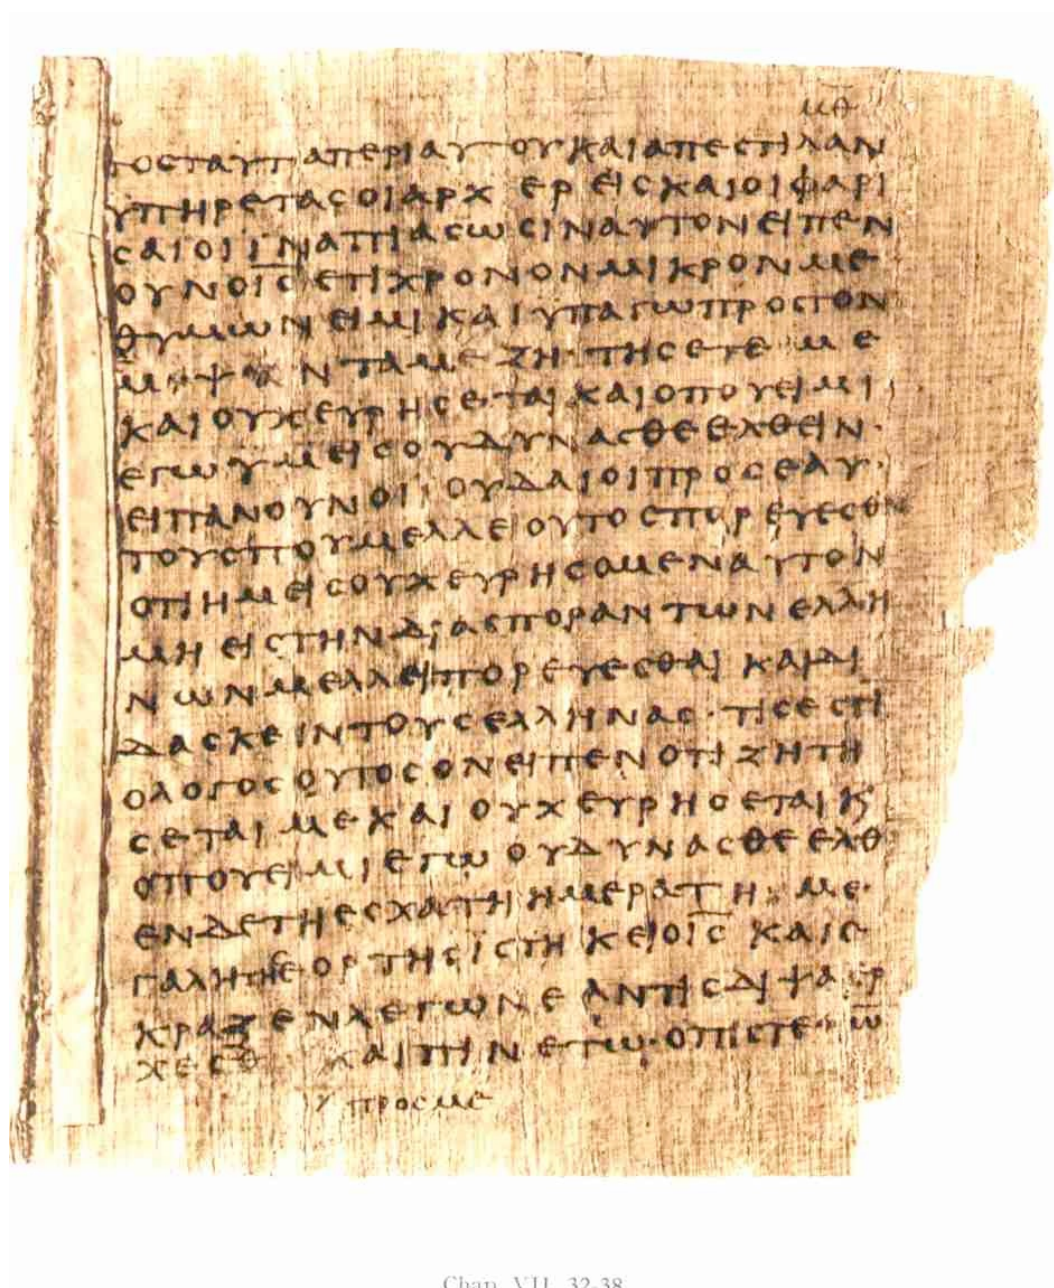 ΜΘ
ΤΟϹΤΑΥΤΑΠΕΡΙΑΥΤΟΥΚΑΙΑΠΕϹΤΙΛΑΝ
ΥΠΗΡΕΤΑϹΟΙΑΡΧ ΕΡΕΙϹΚΑΙΟΙΦΑΡΙ
ϹΑΙΟΙΙΝΑΠΙΑϹΩϹΙΝΑΥΤΟΝΕΙΠΕΝ
ΟΥΝΟΙ̅Ϲ̅ΕΤΙΧΡΟΝΟΝΜΙΚΡΟΝΜΕ
ΘΥΜΩΝΕΙΜΙΚΑΙΥΠΑΓΩΠΡΟϹΤΟΝ
ΜΨΑΝΤΑΜΕΖΗΤΗϹΕΤΕ ΜΕ
ΚΑΙΟΥΧΕΥΡΗϹΕΤΑΙΚΑΙΟΠΟΥΕΙΜΙ
ΕΓΩΥΜΕΙϹΟΥΔΥΝΑϹΘΕΕΛΘΕΙΝ·
ΕΙΠΑΝΟΥΝΟΙΙΟΥΔΑΙΟΙΠΡΟϹΕΑΥ
ΤΟΥϹΠΟΥΜΕΛΛΕΙΟΥΤΟϹΠΟΡΕΥΕϹΘΑΙ
ΟΤΙΗΜΕΙϹΟΥΧΕΥΡΗϹΟΜΕΝΑΥΤΟΝ
ΜΗΕΙϹΤΗΝΔΙΑϹΠΟΡΑΝΤΩΝΕΛΛΗ
ΝΩΝΜΕΛΛΕΙΠΟΡΕΥΕϹΘΑΙΚΑΙΔΙ
ΔΑϹΚΕΙΝΤΟΥϹΕΛΛΗΝΑϹ·ΤΙϹΕϹΤΙ
ΟΛΟΓΟϹΟΥΤΟϹΟΝΕΙΠΕΝΟΤΙΖΗΤΗ
ϹΕΤΑΙΜΕΚΑΙΟΥΧΕΥΡΗϹΕΤΑΙΚ
ΟΠΟΥΕΙΜΙΕΓΩΟΥΔΥΝΑϹΘΕΕΛΘ
ΕΝΔΕΤΗΕϹΧΑΤΗΗΜΕΡΑΤΗΜΕ
ΓΑΛΗΤΗϹΕΟΡΤΗϹΙϹΤΗΚΕΙΟΙ̅Ϲ̅ΚΑΙΕ
ΚΡΑΖΕΝΛΕΓΩΝΕΑΝΤΙϹΔΙΨΑΕΡ
ΧΕϹΘ ΚΑΙΠΙΝΕΤΩ·ΟΠΙϹΤΕΥΩ̅
ΠΡΟϹΜΕ
Chap. VII, 32-38